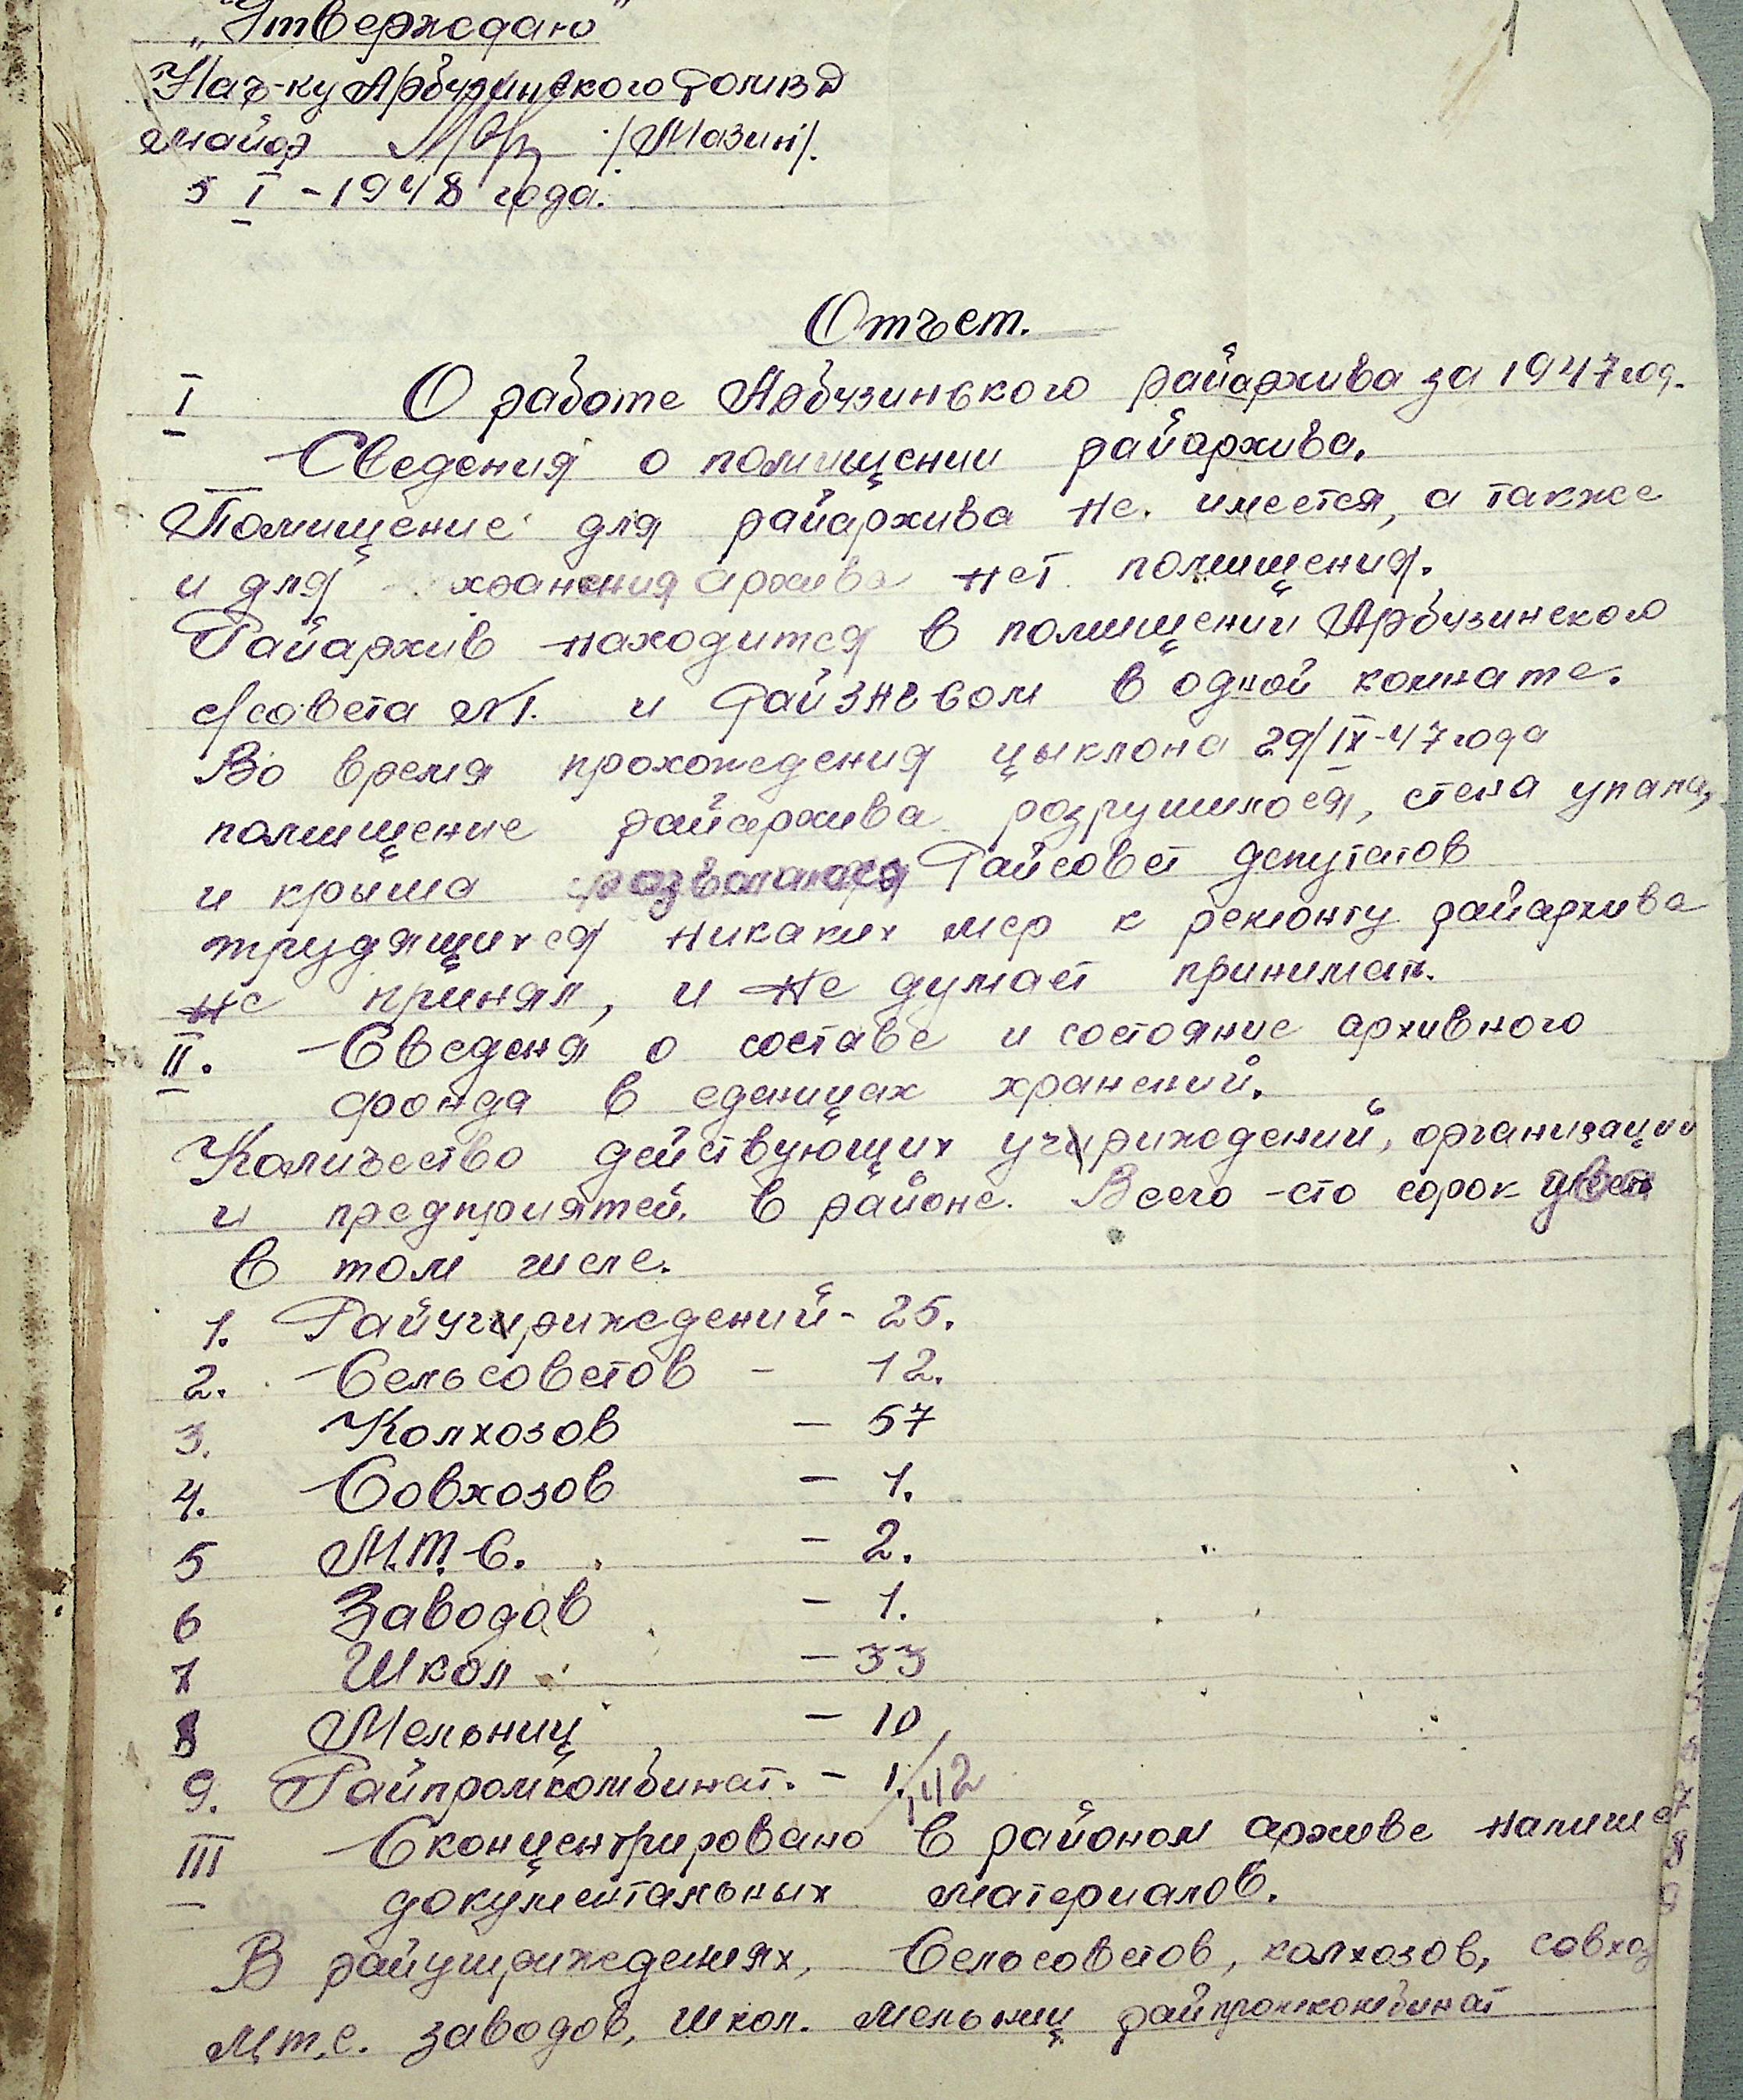 1
„Утверждаю"
Нач-ку Арбузинского РОМВД
майор /Мазин/.
5 I - 1948 года.
Отчет.
I О работе Арбузинького райархива за 1947 год.
Сведения о помищении райархива.
Помищение для райархива не. имеется, а также
и для хранения архива нет помищения.
Райархив находится в помищении Арбузинского
с/совета №1. и в одной комнате.
Во время прохождения цыклона 29/IX-47 года
помищение райархива розрушилося, стена упала,
и крыша развалилася Райсовет депутатов
трудящихся никаких мер к ремонту райархива
не принял, и не думает принимать.
II. Сведеня о составе и состояние архивного
фонда в еденицах хранений.
Количество действующих учриждений, организаций
и предприятей. в районе. Всего - сто сорок
в том числе.
1. Райучриждений - 25.
2. Сельсоветов - 12.
3. Колхозов - 57
4. Совхозов - 1.
5 М.Т.С. - 2.
6 Заводов - 1.
7 Школ - 33
8 Мельниц - 10
9. Райпромкомбинат. - 1. 142
III Сконцентрировано в районом архиве
документальных материалов.
В райучриждениях, Сельсоветов, колхозов, совхоз
М.т.с. заводов, школ. мельниц райпромкомбинат